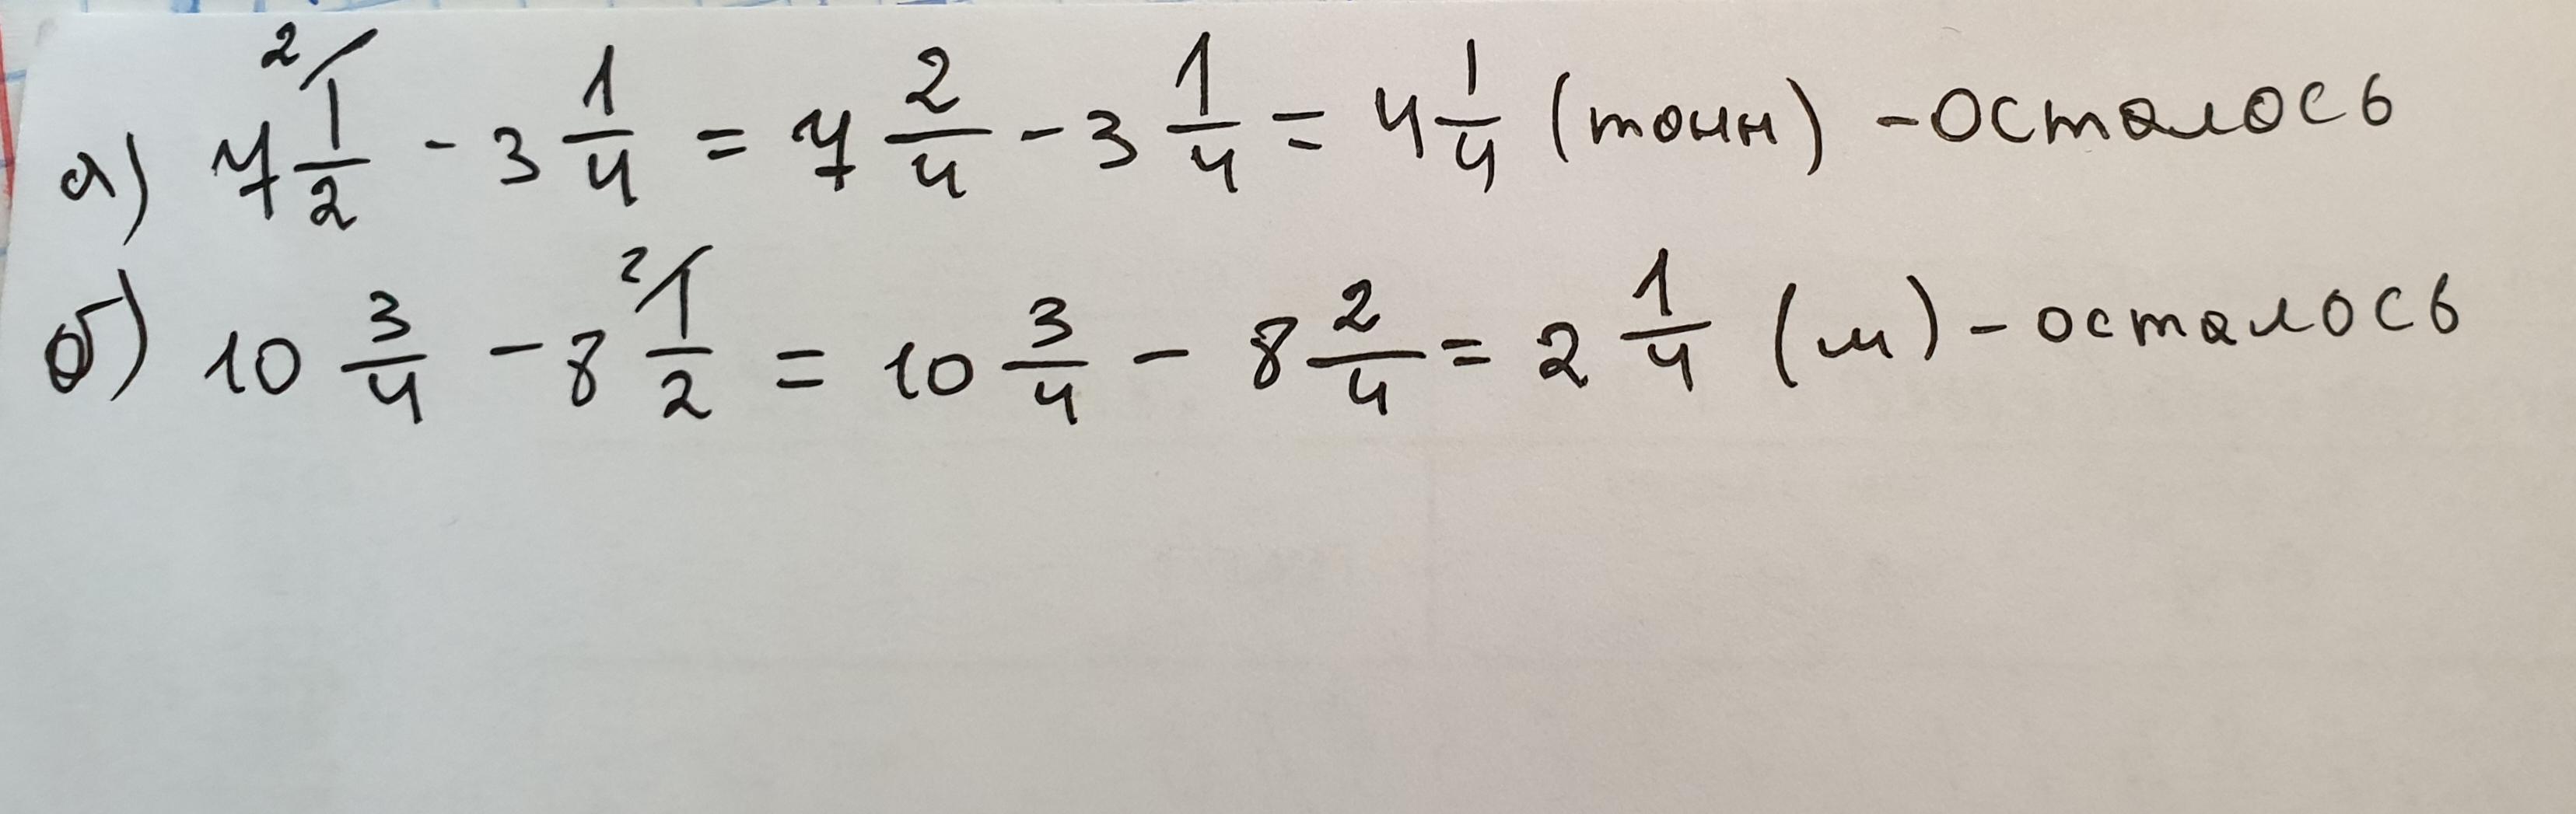 а) 7 ²⁄ 1/2 - 3 1/4 = 7 2/4 - 3 1/4 = 4 1/4 (тонн) - осталось
б) 10 3/4 - 8 ²⁄ 1/2 = 10 3/4 - 8 2/4 = 2 1/4 (м) - осталось